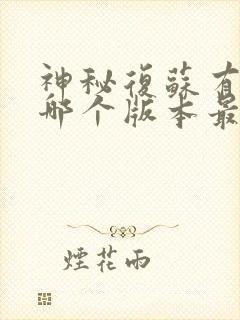 神秘復蘇有
哪个版本最
煙花雨